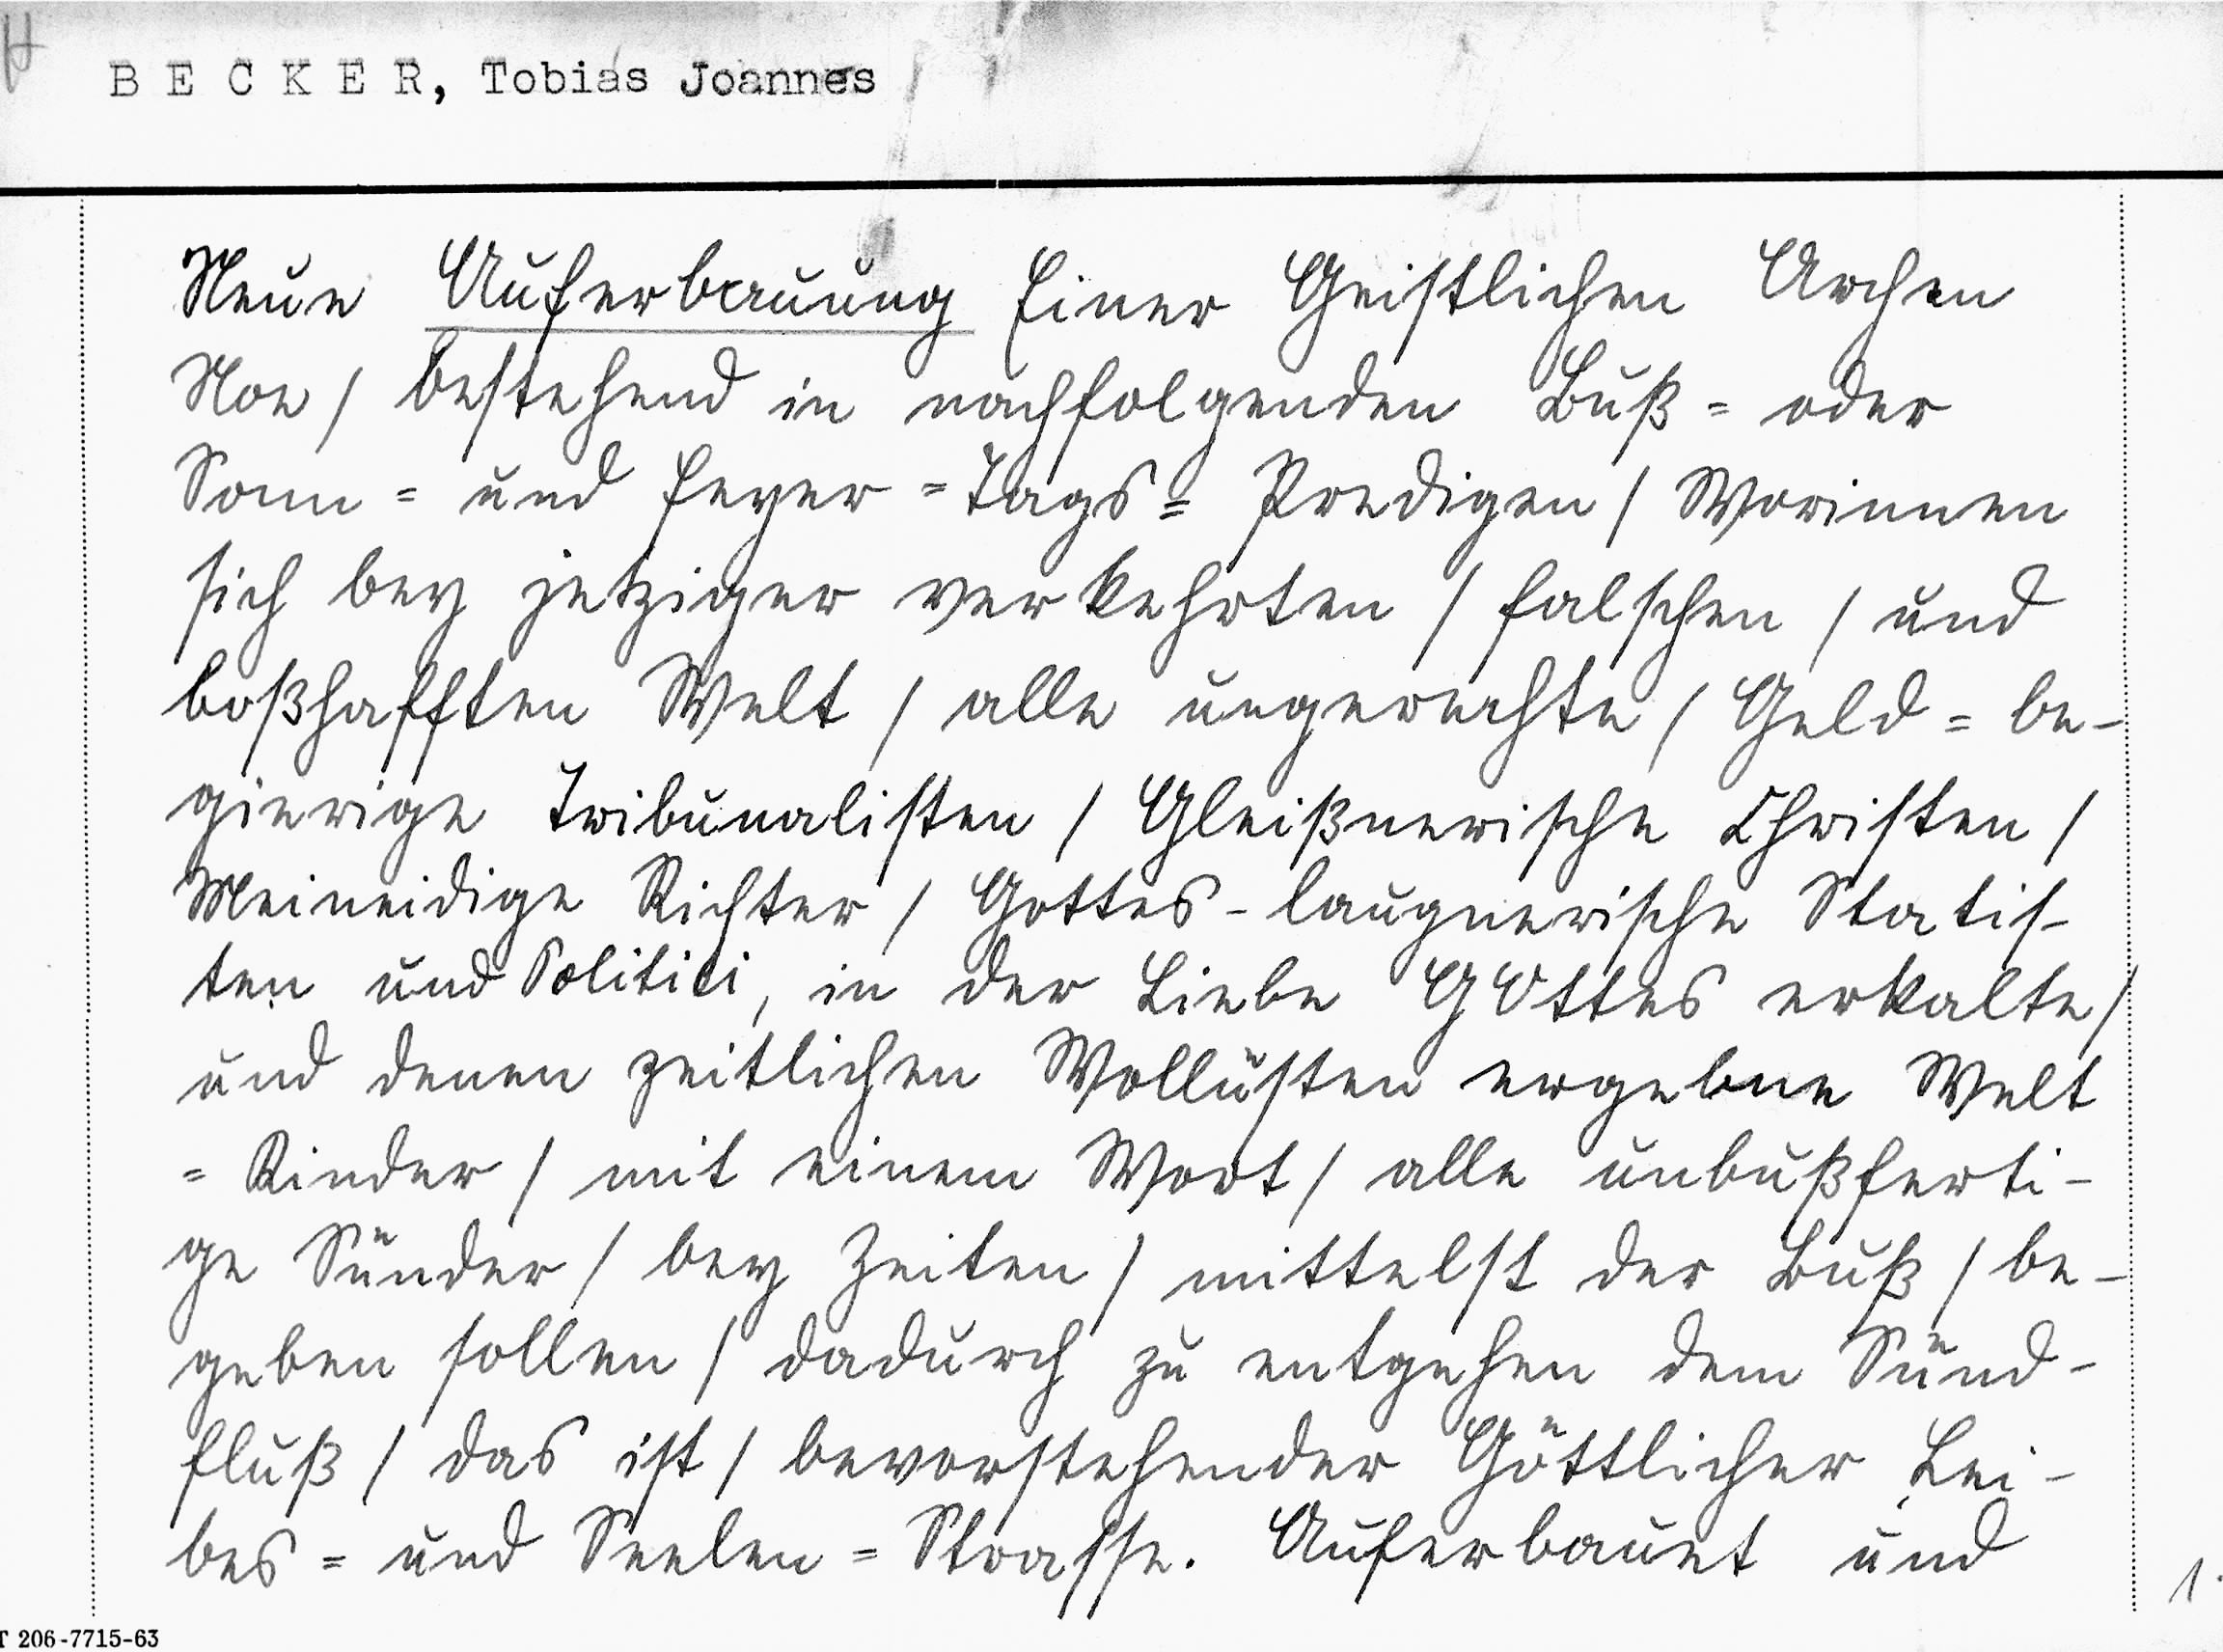 BECKER, Tobias Joannes
Neue Auferbauung Einer Geistlichen Archen
Noe / bestehend in nachfolgenden Buß = oder
Sonn = und Feyer = Tags = Predigen / Worinnen
sich bey jetziger verkehrten / falschen / und
boßhafften Welt / alle ungerechte / Geld = be-
gierige Tribunalisten / Gleißnerische Christen /
Meineidige Richter / Gottes - laugnerische Statis-
ten und Politici, in der Liebe GOttes erkalte /
und denen zeitlichen Wollüsten ergebne Welt
= Kinder / mit einem Wort / alle unbußferti-
ge Sünder / bey Zeiten / mittelst der Buß / be-
geben sollen / dadurch zu entgehen dem Sünd-
fluß / das ist / bevorstehender Göttlicher Lei-
bes = und Seelen = Strasse. Auferbauet und
1.
T 206-7715-63